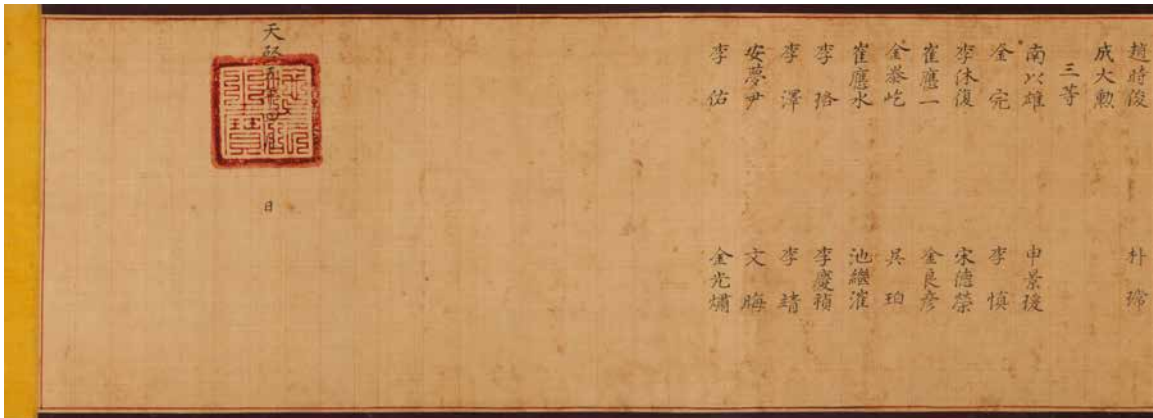 趙時俊 朴瑺
成大勲
三等
南以雄 申景瑗
金完 李愼
李休復 宋德榮
崔應一 金良彦
金泰屹 吳珀
崔應水 池繼漼
李珞 李慶禎
李澤 李靖
安夢尹 文晦
李佑 金光熽
天啓五年 日